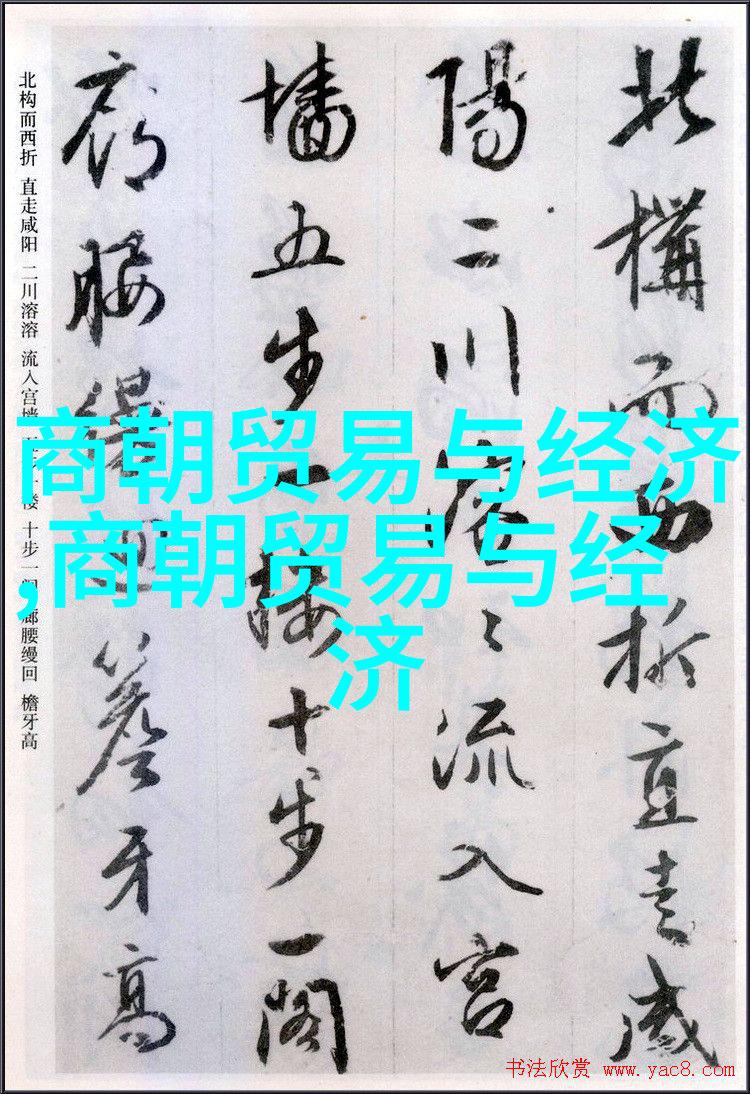 北構而西折直走咸
陽二川溶々流入宮
墻五步一樓十步一閣
廊腰縵迴簷牙高
北构而西折 直走咸阳 二川溶溶 流入宫墙 楼 十步一阁 廊腰缦回 檐牙高
商朝贸易与经济
,商朝贸易与经
济
书法欣赏 www.yac8.com